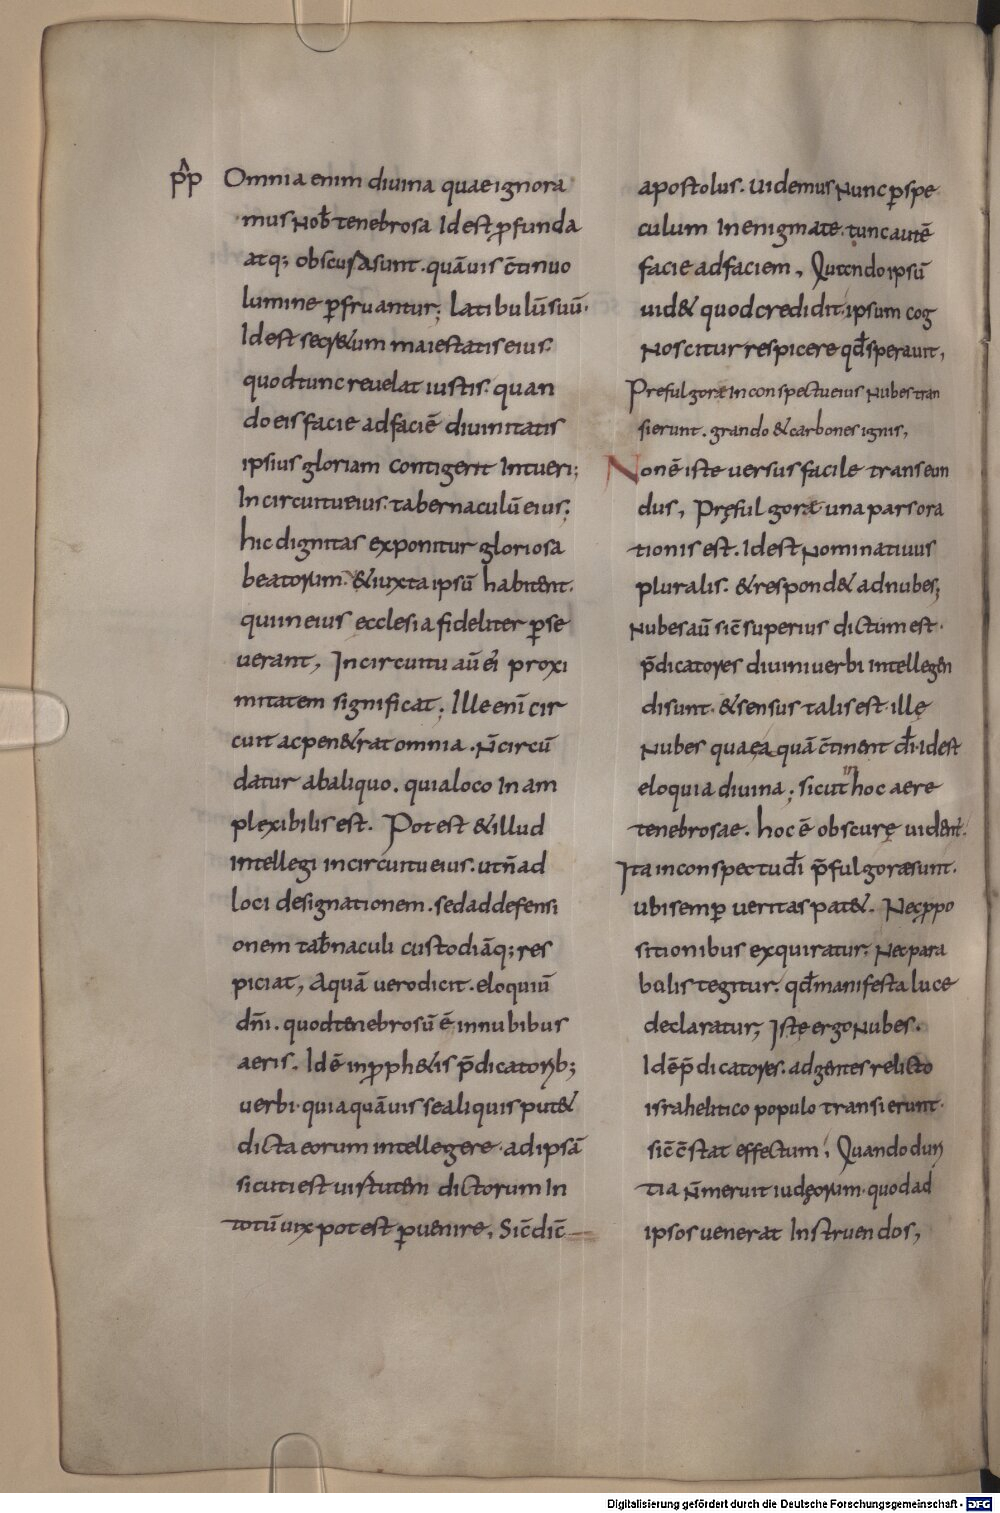 p̂p Omnia enim diuina quae ignora
mus nob̄ tenebrosa Id est ꝓfunda
atq; obscura sunt. quāuis c̄tinuo
lumine ꝑfruantur; Latibulū suū.
Id est secr&um maiestatis eius.
quod tunc reuelat iustis. quan
do eis facie ad faciē diuinitatis
ipsius gloriam contigerit Intueri;
In circuitu eius. tabernaculū eius;
hic dignitas exponitur gloriosa
beatorum. & iuxta ipsū habitent.
qui in eius ecclesia fideliter ꝑse
uerant, In circuitu aū ei proxi
mitatem significat. Ille enī cir
cuit ac pen&rat omnia. n̄ circū
datur ab aliquo. quia loco In am
plexibilis est. Potest & illud
intellegi in circuitu eius. ut n̄ ad
loci designationem. sed ad defensi
onem tab̄naculi custodiāq; res
piciat, Aquā uero dicit. eloquiū
dn̄i. quod tenebrosū ē in nubibus
aeris. Id ē in ꝓph&is p̄dicatorib;
uerbi. quia quāuis se aliquis put&
dicta eorum intellegere. ad ipsā
sicuti est uirtutem dictorum In
totū uix potest ꝑuenire, Sic̄ dic̄
apostolus. Uidemus Nunc ꝑ spe
culum In enigmate. tunc autē
facie ad faciem, Qutendo ipsū
uid& quod credidit. ipsum cog
Noscitur respicere qd̄ sperauit,
Prefulgorae In conspectu eius Nubes tran
sierunt. grando & carbones ignis,
Non ē iste uersus facile transeun
dus, Pręfulgorae una pars ora
tionis est. Id est Nominatiuus
pluralis. & respond& ad nubes;
Nubes aū sic̄ superius dictum est.
p̄dicatores diuini uerbi intellegen
di sunt. & sensus talis est. illę
Nubes quae aquā c̄tinent dī. id est
eloquia diuina; sicut in hoc aere
tenebrosae. hoc ē obscurę uident̄.
Ita in conspectu dī p̄fulgorae sunt.
ubi semꝑ ueritas pat&. Nec ꝓpo
sitionibus exquiratur; Nec para
bolis tegitur. qd̄ manifesta luce
declaratur; Istę ergo Nubes.
Id ē p̄dicatores. ad gentes relicto
israhelitico populo transierunt.
sic̄ c̄stat effectum, Quando duri
tia n̄ meruit iudęorum. quod ad
ipsos uenerat Instruendos,
Digitalisierung gefördert durch die Deutsche Forschungsgemeinschaft - DFG